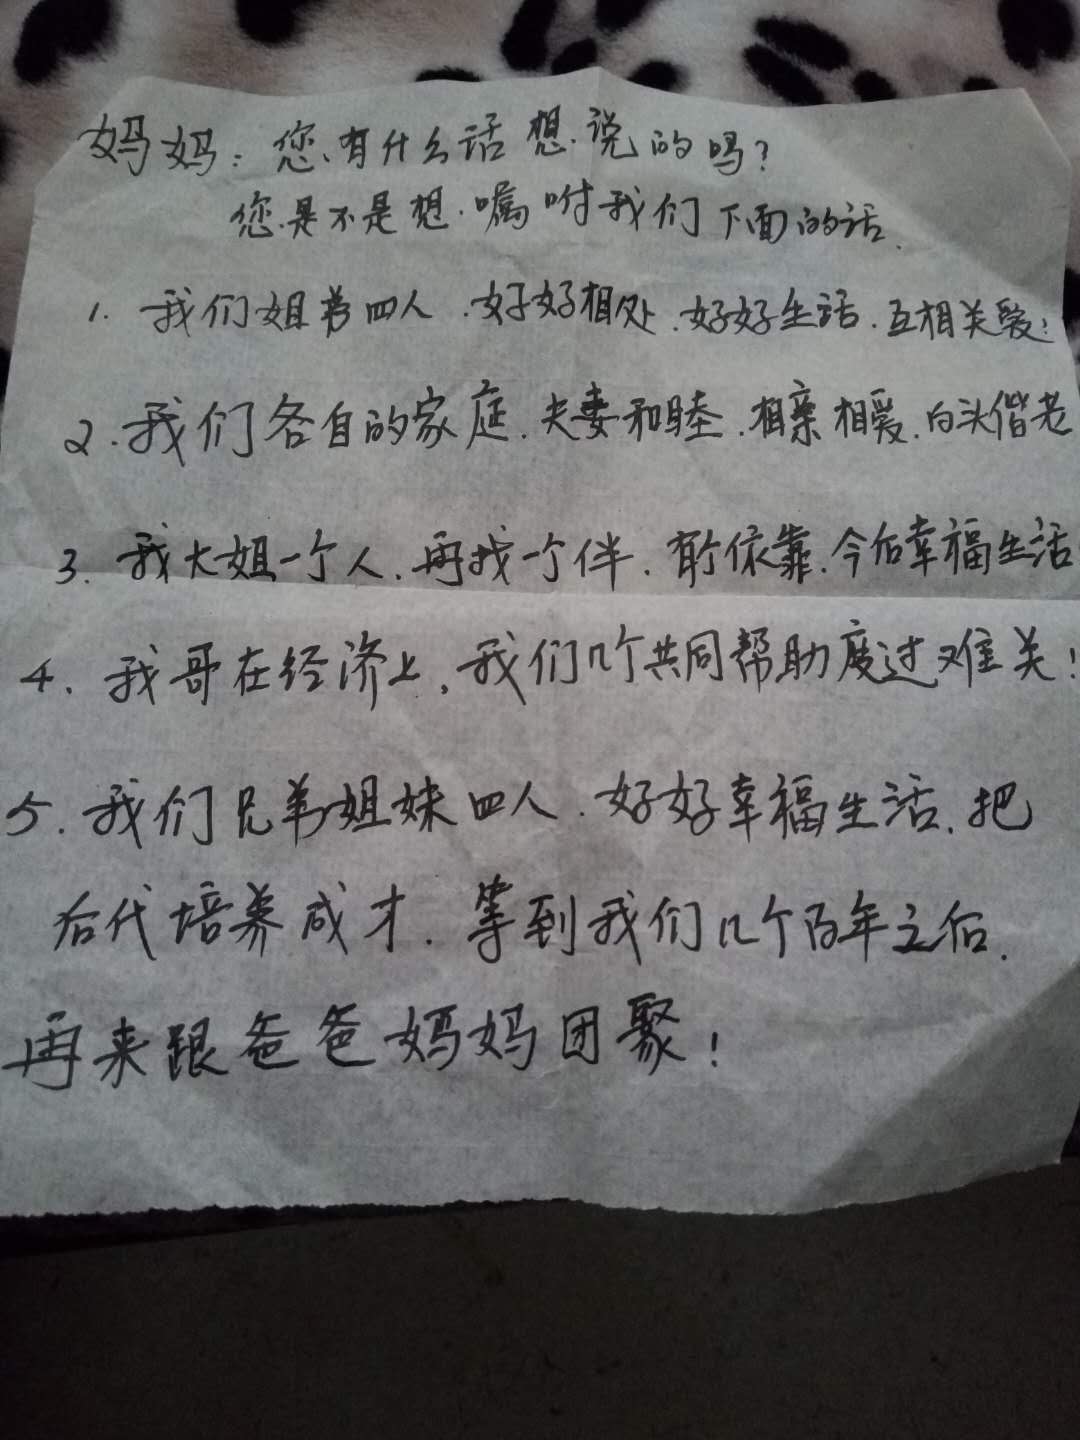 妈妈：您有什么话想说的吗？
您是不是想嘱咐我们下面的话.
1. 我们姐弟四人.好好相处.好好生活.互相关爱！
2.我们各自的家庭.夫妻和睦.相亲相爱.白头偕老
3. 我大姐一个人.再找一个伴.有个依靠.今后幸福生活
4. 我哥在经济上,我们几个共同帮助度过难关！
5.我们兄弟姐妹四人.好好幸福生活.把
后代培养成才.等到我们几个百年之后.
再来跟爸爸妈妈团聚！